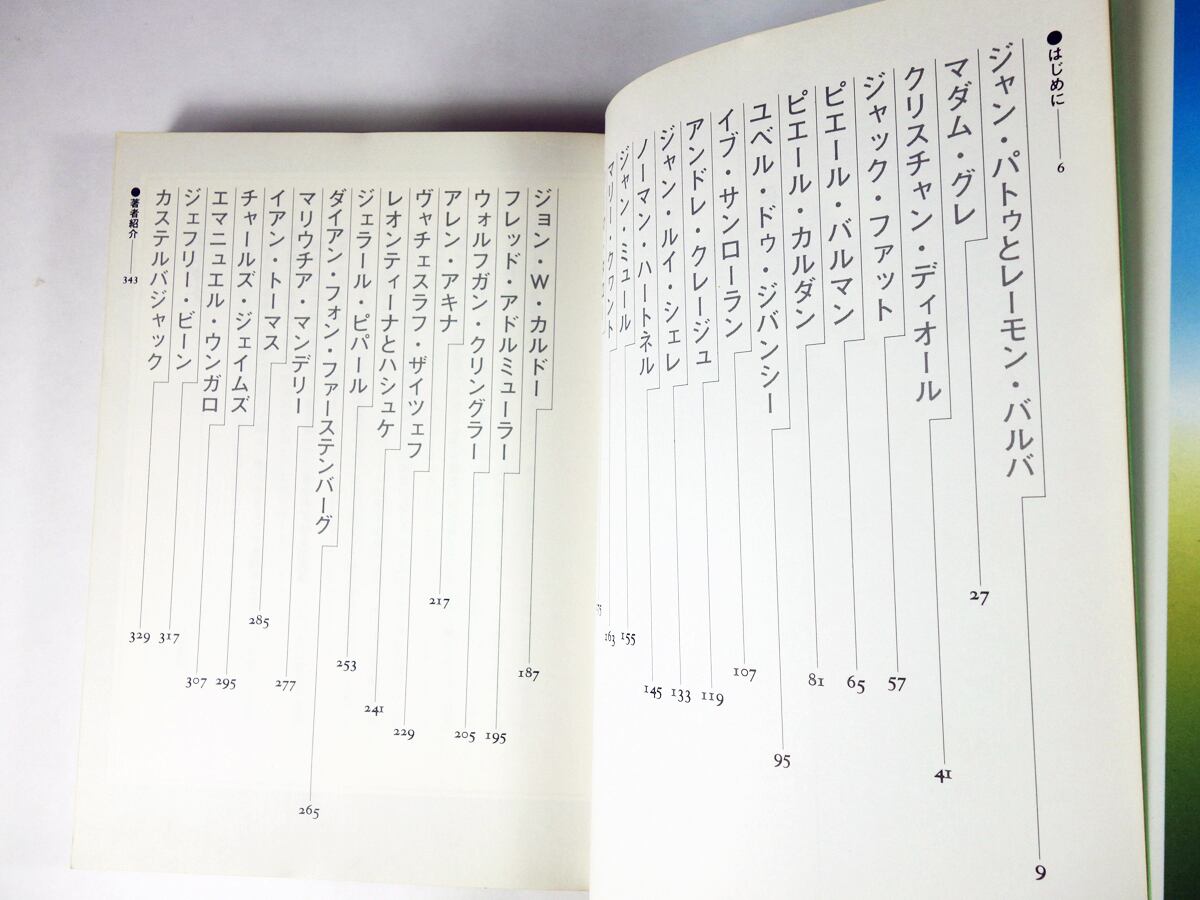 ●はじめに 6
ジャン・パトゥとレーモン・バルバ 9
マダム・グレ 27
クリスチャン・ディオール 41
ジャック・ファット 57
ピエール・バルマン 65
ピエール・カルダン 81
ユベル・ドゥ・ジバンシー 95
イブ・サンローラン 107
アンドレ・クレージュ 119
ジャン・ルイ・シェレ 133
ノーマン・ハートネル 145
ジャン・ミュール 155
マリー・クワント 163
ジョン・W・カルドー 187
フレッド・アドルミューラー 195
ウォルフガン・クリングラー 205
アレン・アキナ 217
ヴャチェスラフ・ザイツェフ 229
レオンティーナとハシュケ 241
ジェラール・ピパール 253
ダイアン・フォン・ファーステンバーグ 265
マリウチア・マンデリー 277
イアン・トーマス 285
チャールズ・ジェイムズ 295
エマニュエル・ウンガロ 307
ジェフリー・ビーン 317
カステルバジャック 329
●著者紹介 343